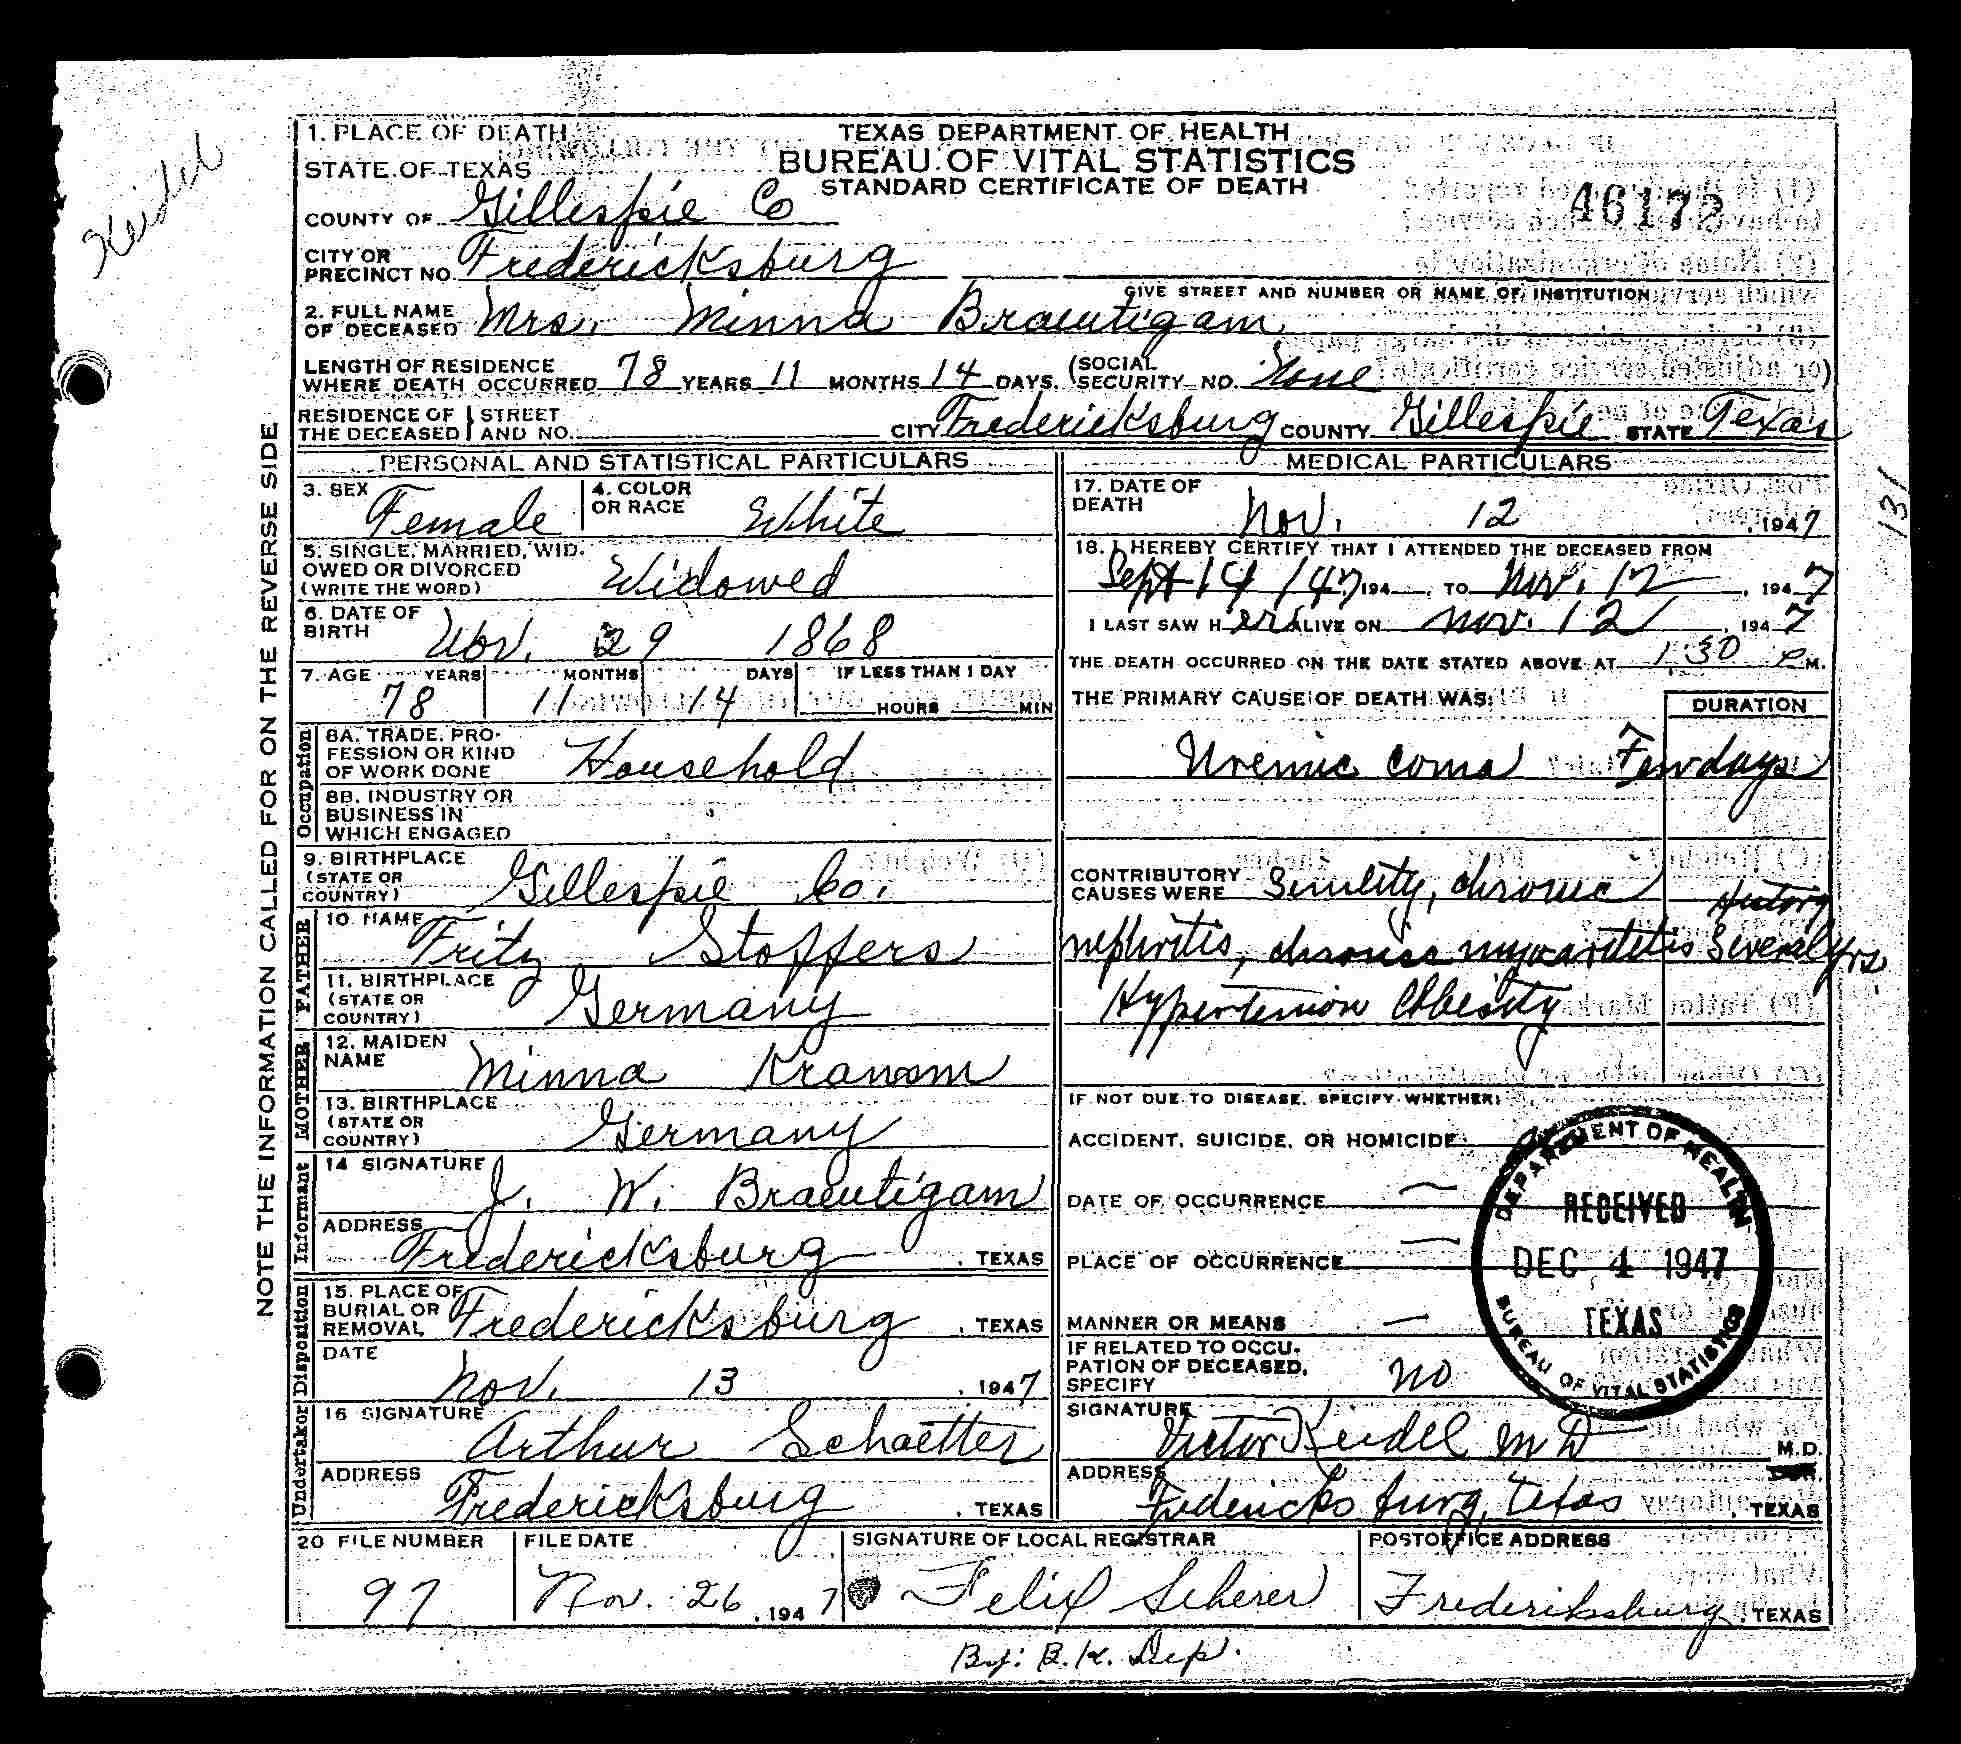 Keidel
1. PLACE OF DEATH
STATE OF TEXAS
COUNTY OF Gillespie Co
CITY OR PRECINCT NO. Fredericksburg
TEXAS DEPARTMENT OF HEALTH
BUREAU OF VITAL STATISTICS
STANDARD CERTIFICATE OF DEATH
46173
GIVE STREET AND NUMBER OR NAME OF INSTITUTION
2. FULL NAME OF DECEASED Mrs. Minna Braeutigam
LENGTH OF RESIDENCE WHERE DEATH OCCURRED 78 YEARS 11 MONTHS 14 DAYS. (SOCIAL SECURITY NO. None)
RESIDENCE OF THE DECEASED STREET AND NO. CITY Fredericksburg COUNTY Gillespie STATE Texas
NOTE THE INFORMATION CALLED FOR ON THE REVERSE SIDE
PERSONAL AND STATISTICAL PARTICULARS
3. SEX Female 4. COLOR OR RACE White
5. SINGLE, MARRIED, WIDOWED OR DIVORCED (WRITE THE WORD) Widowed
6. DATE OF BIRTH Nov. 29 1868
7. AGE YEARS MONTHS DAYS IF LESS THAN 1 DAY
78 11 14 HOURS MIN
Occupation
8A. TRADE, PROFESSION OR KIND OF WORK DONE Household
8B. INDUSTRY OR BUSINESS IN WHICH ENGAGED
9. BIRTHPLACE (STATE OR COUNTRY) Gillespie Co.
FATHER
10. NAME Fritz Stoffers
11. BIRTHPLACE (STATE OR COUNTRY) Germany
MOTHER
12. MAIDEN NAME Minna
13. BIRTHPLACE (STATE OR COUNTRY) Germany
Informant
14 SIGNATURE J. W. Braeutigam
ADDRESS Fredericksburg, TEXAS
Disposition
15. PLACE OF BURIAL OR REMOVAL Fredericksburg, TEXAS
DATE Nov. 13, 1947
Undertaker
16 SIGNATURE Arthur Schaetter
ADDRESS Fredericksburg, TEXAS
MEDICAL PARTICULARS
131
17. DATE OF DEATH Nov. 12, 1947
18. I HEREBY CERTIFY THAT I ATTENDED THE DECEASED FROM
Sept 14 /47 194 TO Nov. 12, 1947
I LAST SAW HER ALIVE ON Nov. 12, 1947
THE DEATH OCCURRED ON THE DATE STATED ABOVE AT 1:30 PM.
THE PRIMARY CAUSE OF DEATH WAS: DURATION
Uremic coma Few days
CONTRIBUTORY CAUSES WERE Senility, chronic History
nephritis, chronic myocarditis Several yrs
Hypertension Obesity
IF NOT DUE TO DISEASE, SPECIFY WHETHER:
ACCIDENT, SUICIDE, OR HOMICIDE
DATE OF OCCURRENCE —
PLACE OF OCCURRENCE —
MANNER OR MEANS —
IF RELATED TO OCCUPATION OF DECEASED, SPECIFY no
DEPARTMENT OF HEALTH
RECEIVED
DEC 4 1947
TEXAS
BUREAU OF VITAL STATISTICS
SIGNATURE Victor Keidel MD M.D.
ADDRESS Fredericksburg, Texas, TEXAS
20 FILE NUMBER FILE DATE SIGNATURE OF LOCAL REGISTRAR POSTOFFICE ADDRESS
97 Nov. 26, 1947 Felix Scherer Fredericksburg, TEXAS
By: B.K. Dep.